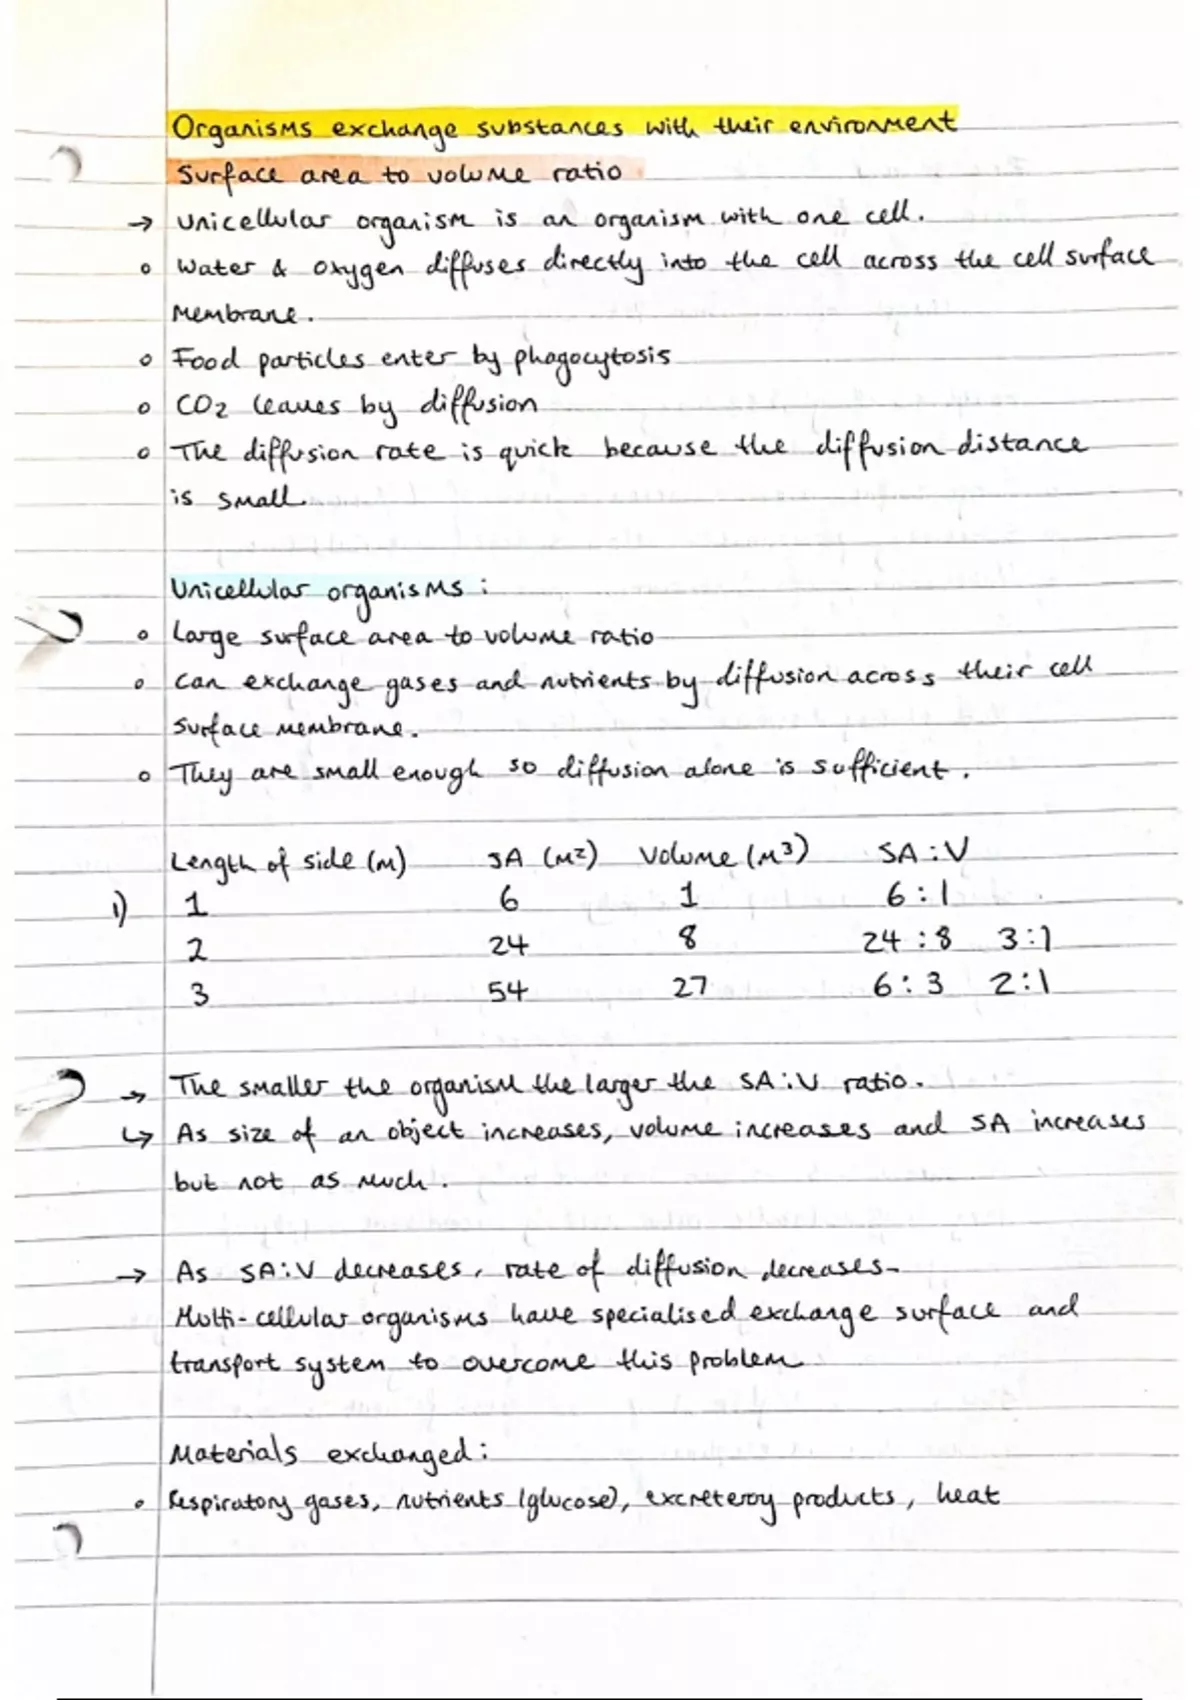 Organisms exchange substances with their environment
Surface area to volume ratio
→ Unicellular organism is an organism with one cell.
o Water & oxygen diffuses directly into the cell across the cell surface
membrane.
o Food particles enter by phagocytosis
o CO2 leaves by diffusion
o The diffusion rate is quick because the diffusion distance
is small.
Unicellular organisms :
o Large surface area to volume ratio
o Can exchange gases and nutrients by diffusion across their cell
surface membrane.
o They are small enough so diffusion alone is sufficient.
Length of side (m) SA (m²) Volume (m³) SA:V
1) 1 6 1 6:1
2 24 8 24:8 3:1
3 54 27 6:3 2:1
→ The smaller the organism the larger the SA:V ratio.
↳ As size of an object increases, volume increases and SA increases
but not as much.
→ As SA:V decreases, rate of diffusion decreases-
Multi-cellular organisms have specialised exchange surface and
transport system to overcome this problem
Materials exchanged:
o Respiratory gases, nutrients (glucose), excreteroy products, heat